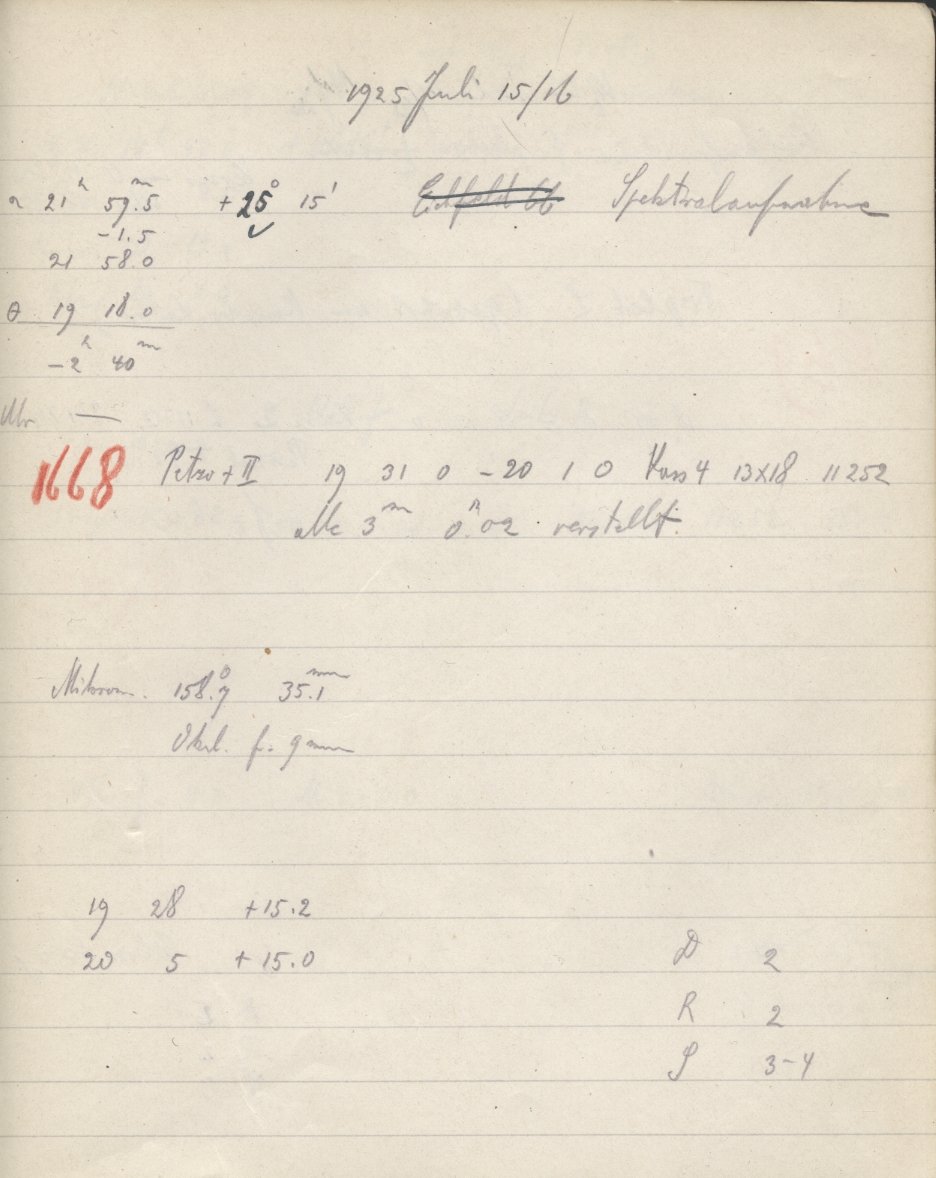 1925 Juli 15/16
α 21ʰ 59.ᵐ5 +25° 15' Eichfeld 66 Spektralaufnahme
-1.5
21 58.0
θ 19 18.0
-2ʰ 40ᵐ
Uhr —
1668 Petzv + II 19 31 0 -20 1 0 Kass 4 13x18 11252
alle 3ᵐ verstellt.
Mikrom. 158.°7 35.1ᵐᵐ
Okul. f. 9mm
19 28 +15.2
20 5 +15.0
D 2
R 2
S 3-4